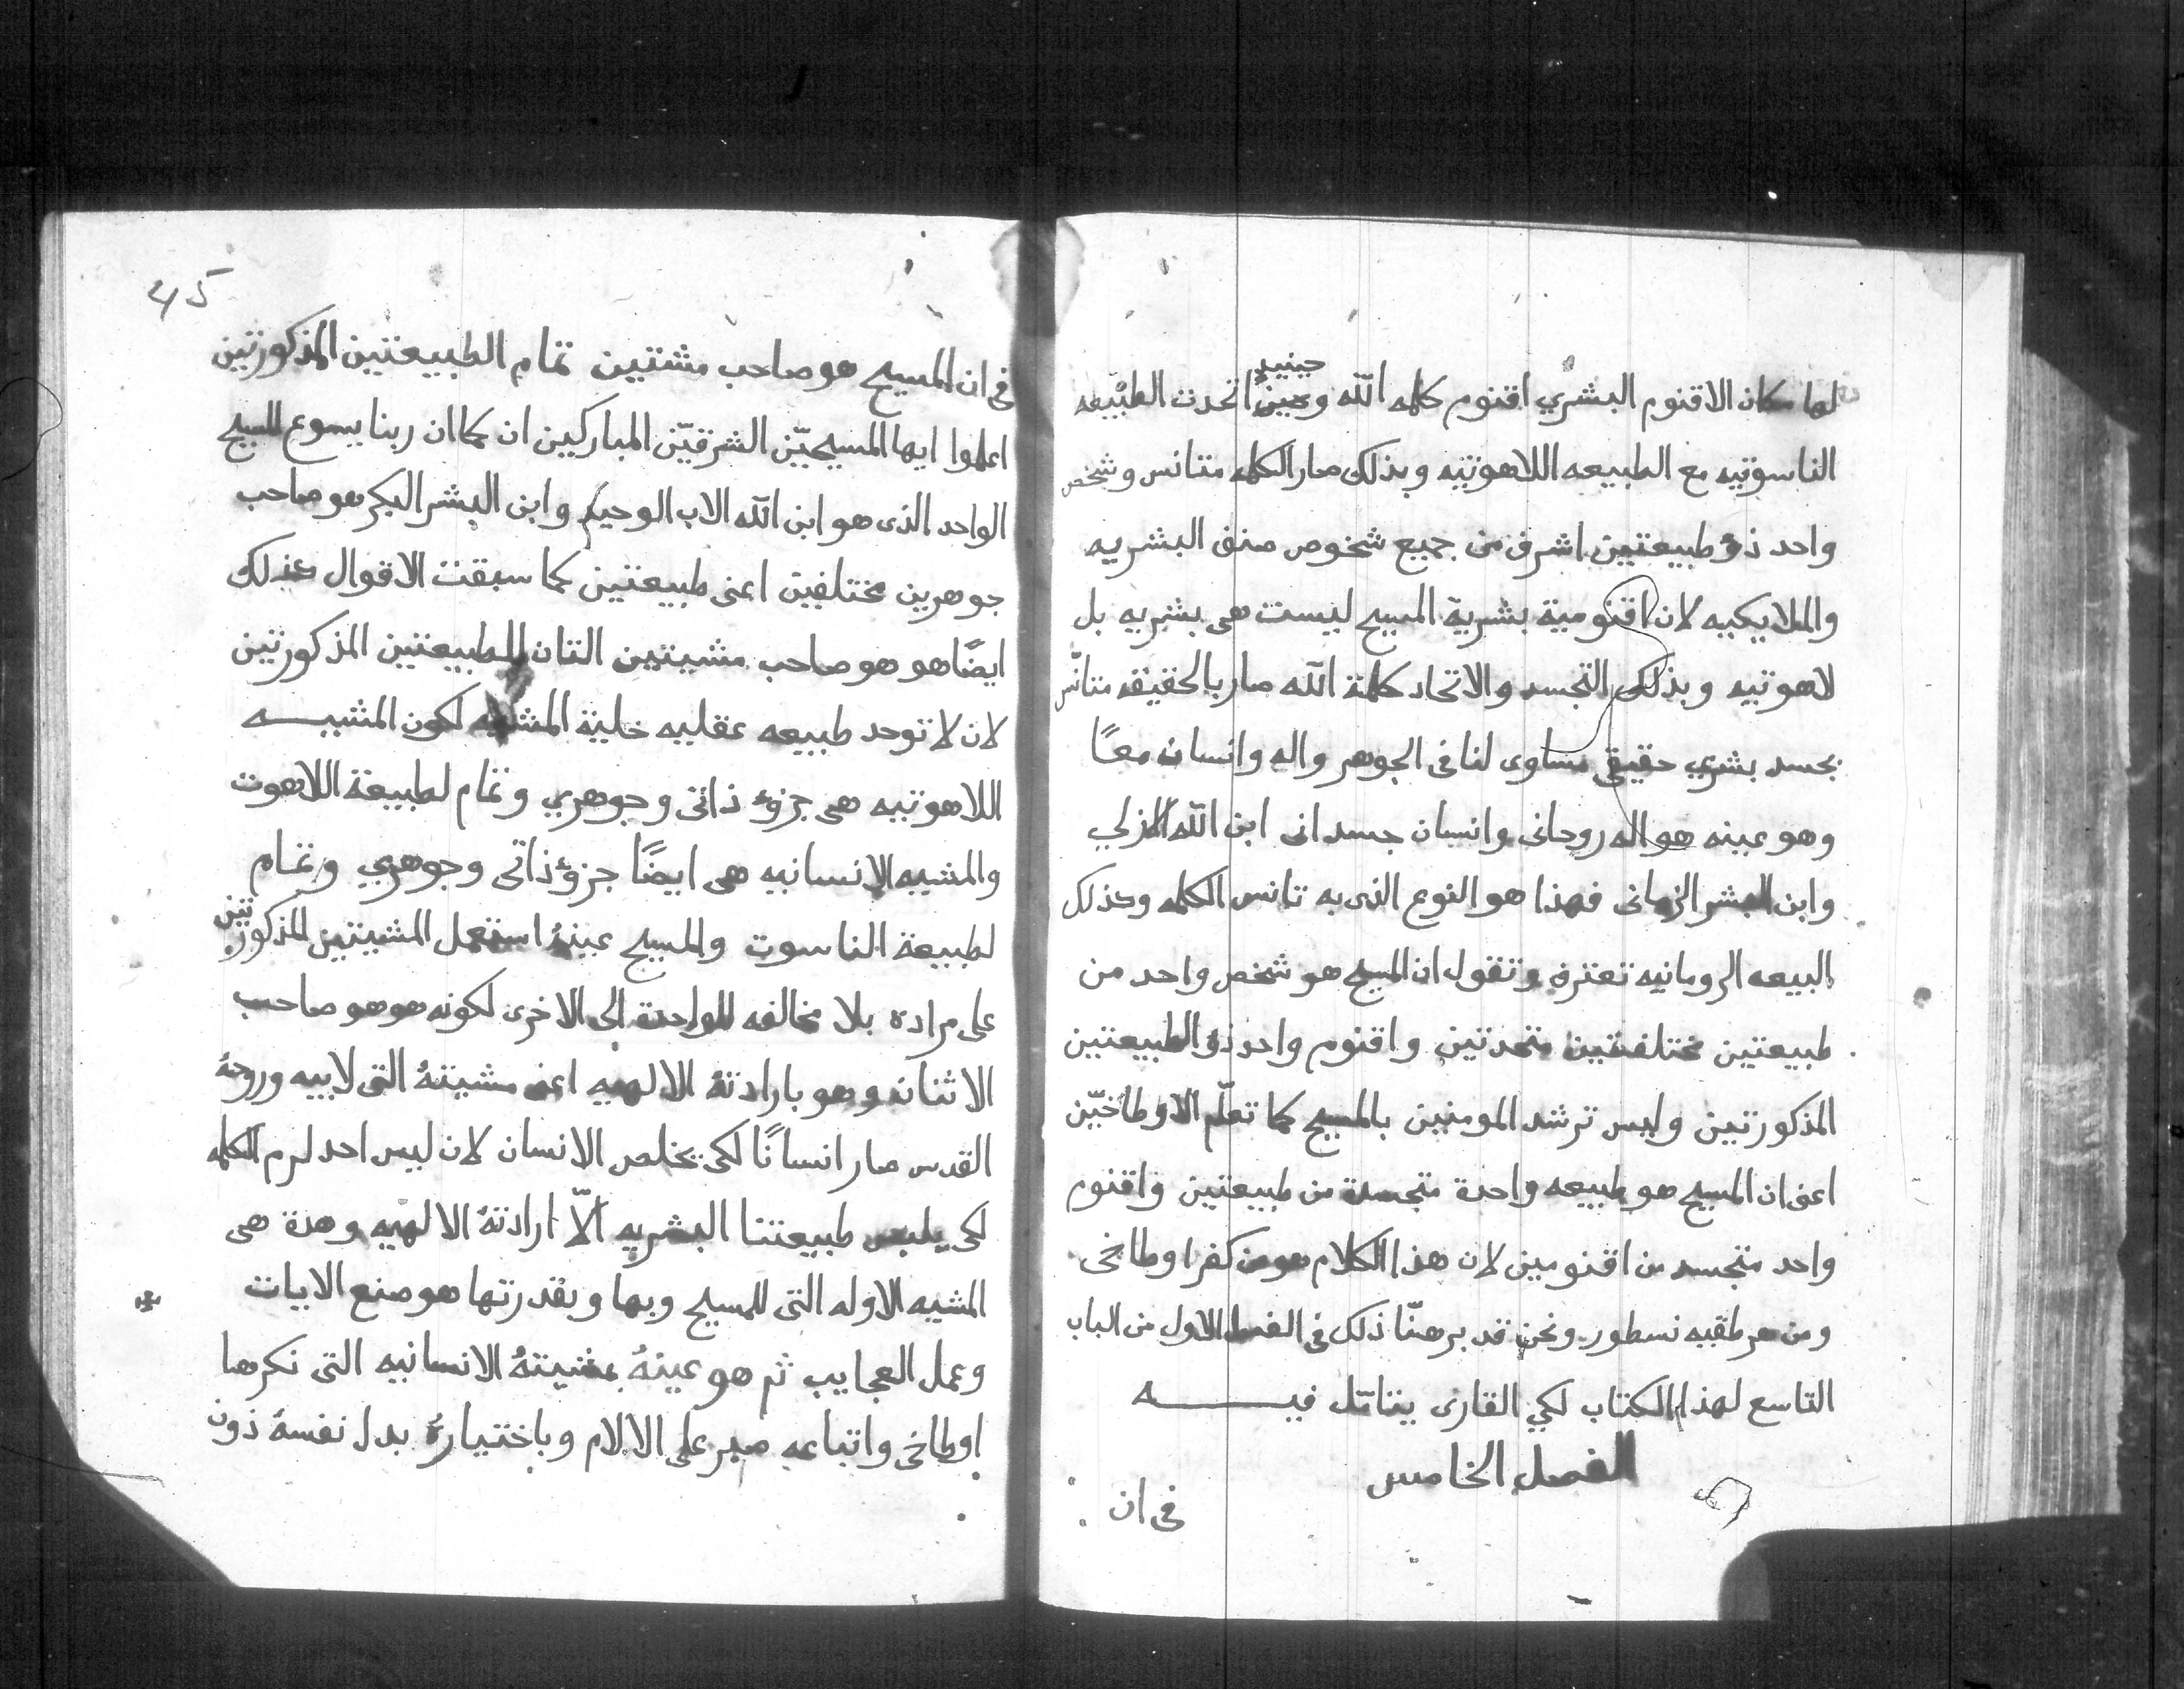 لها مكان الاقنوم البشري اقنوم كلمه الله وحينيذٍ اتحدت الطبيعه
الناسوتيه مع الطبيعه اللاهوتيه وبذلك صار الكلمه متانس وشخص
واحد ذو طبيعتين اشرف من جميع شخوص صنف البشريه
والملايكيه لان اقنومية بشرية المسيح ليست هى بشريه بل
لاهوتيه وبذلك التجسد والاتحاد كلمة الله صار بالحقيقه متانّس
بجسد بشري حقيقى مساوى لنا فى الجوهر واله وانسان معًا
وهو عينه هو اله روحانى وانسان جسدانى ابن الله الازلي
وابن البشر الزمانى فهذا هو النوع الذى به تانس الكلمه وكذلك
البيعه الرومانيه تعترف وتقول ان المسيح هو شخص واحد من
طبيعتين مختلفتين متحدتين واقنوم واحد ذو الطبيعتين
المذكورتين وليس ترشد المومنين بالمسيح كما تعلّم الاوطاخيّن
اعنى ان المسيح هو طبيعه واحدة متجسدة من طبيعتين واقنوم
واحد متجسد من اقنومين لان هذا الكلام هو من كفر اوطاخى
ومن هرطقيه نسطور ونحن قد برهنّا ذلك فى الفصل الاول من الباب
التاسع لهذا الكتاب لكي القارى يتامّل فيه
الفصل الخامس
فى ان
45
فى ان المسيح هو صاحب مشتين تمام الطبيعتين المذكورتين
اعلموا ايها المسيحيّن الشرقيّن المباركين ان كما ان ربنا يسوع المسيح
الواحد الذى هو ابن الله الاب الوحيد وابن البشر البكر هو صاحب
جوهرين مختلفين اعنى طبيعتين كما سبقت الاقوال كذلك
ايضًا هو هو صاحب مشيتين التان للطبيعتين المذكورتين
لان لا توحد طبيعه عقليه خلية المشيه لكون المشيه
اللاهوتيه هى جزؤ ذاتى وجوهري وتمام لطبيعة اللاهوت
والمشيه الانسانيه هى ايضًا جزؤ ذاتى وجوهري وتمام
لطبيعة الناسوت والمسيح عينهُ استعمل المشيتين المذكورتين
على مراده بلا مخالفه للواحدة الى الاخرى لكونه هو هو صاحب
الاثنان وهو بارادتهُ الالهيه اعنى مشيتهُ التى لابيه وروحهُ
القدس صار انسانًا لكى يخلص الانسان لان ليس احد لزم الكلمه
لكى يلبس طبيعتنا البشريه الّا ارادتهُ الالهيه وهذة هى
المشيه الاوله التى للمسيح وبها وبقدرتها هو صنع الايات
وعمل العجايب ثم هو عينهُ بمشيتهُ الانسانيه التى نكرها
اوطاخى واتباعه صبر على الالام وباختيارهُ بدل نفسهُ ذون